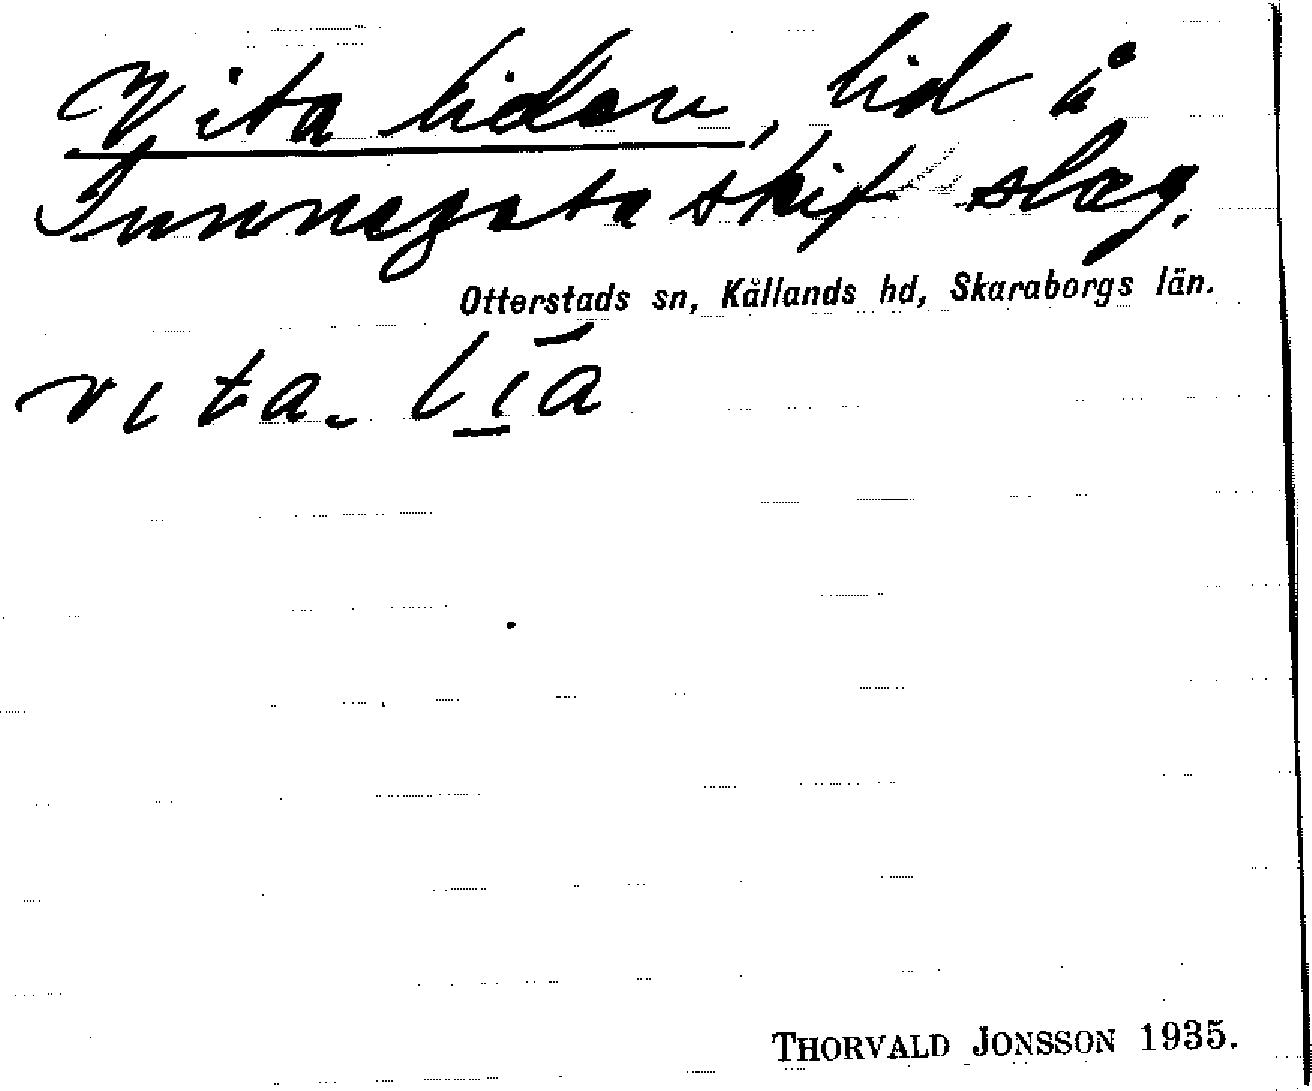 Vita liden, lid å
Innegata skifteslag.
Otterstads sn, Kållands hd, Skaraborgs län.
vita- lia
THORVALD JONSSON 1935.